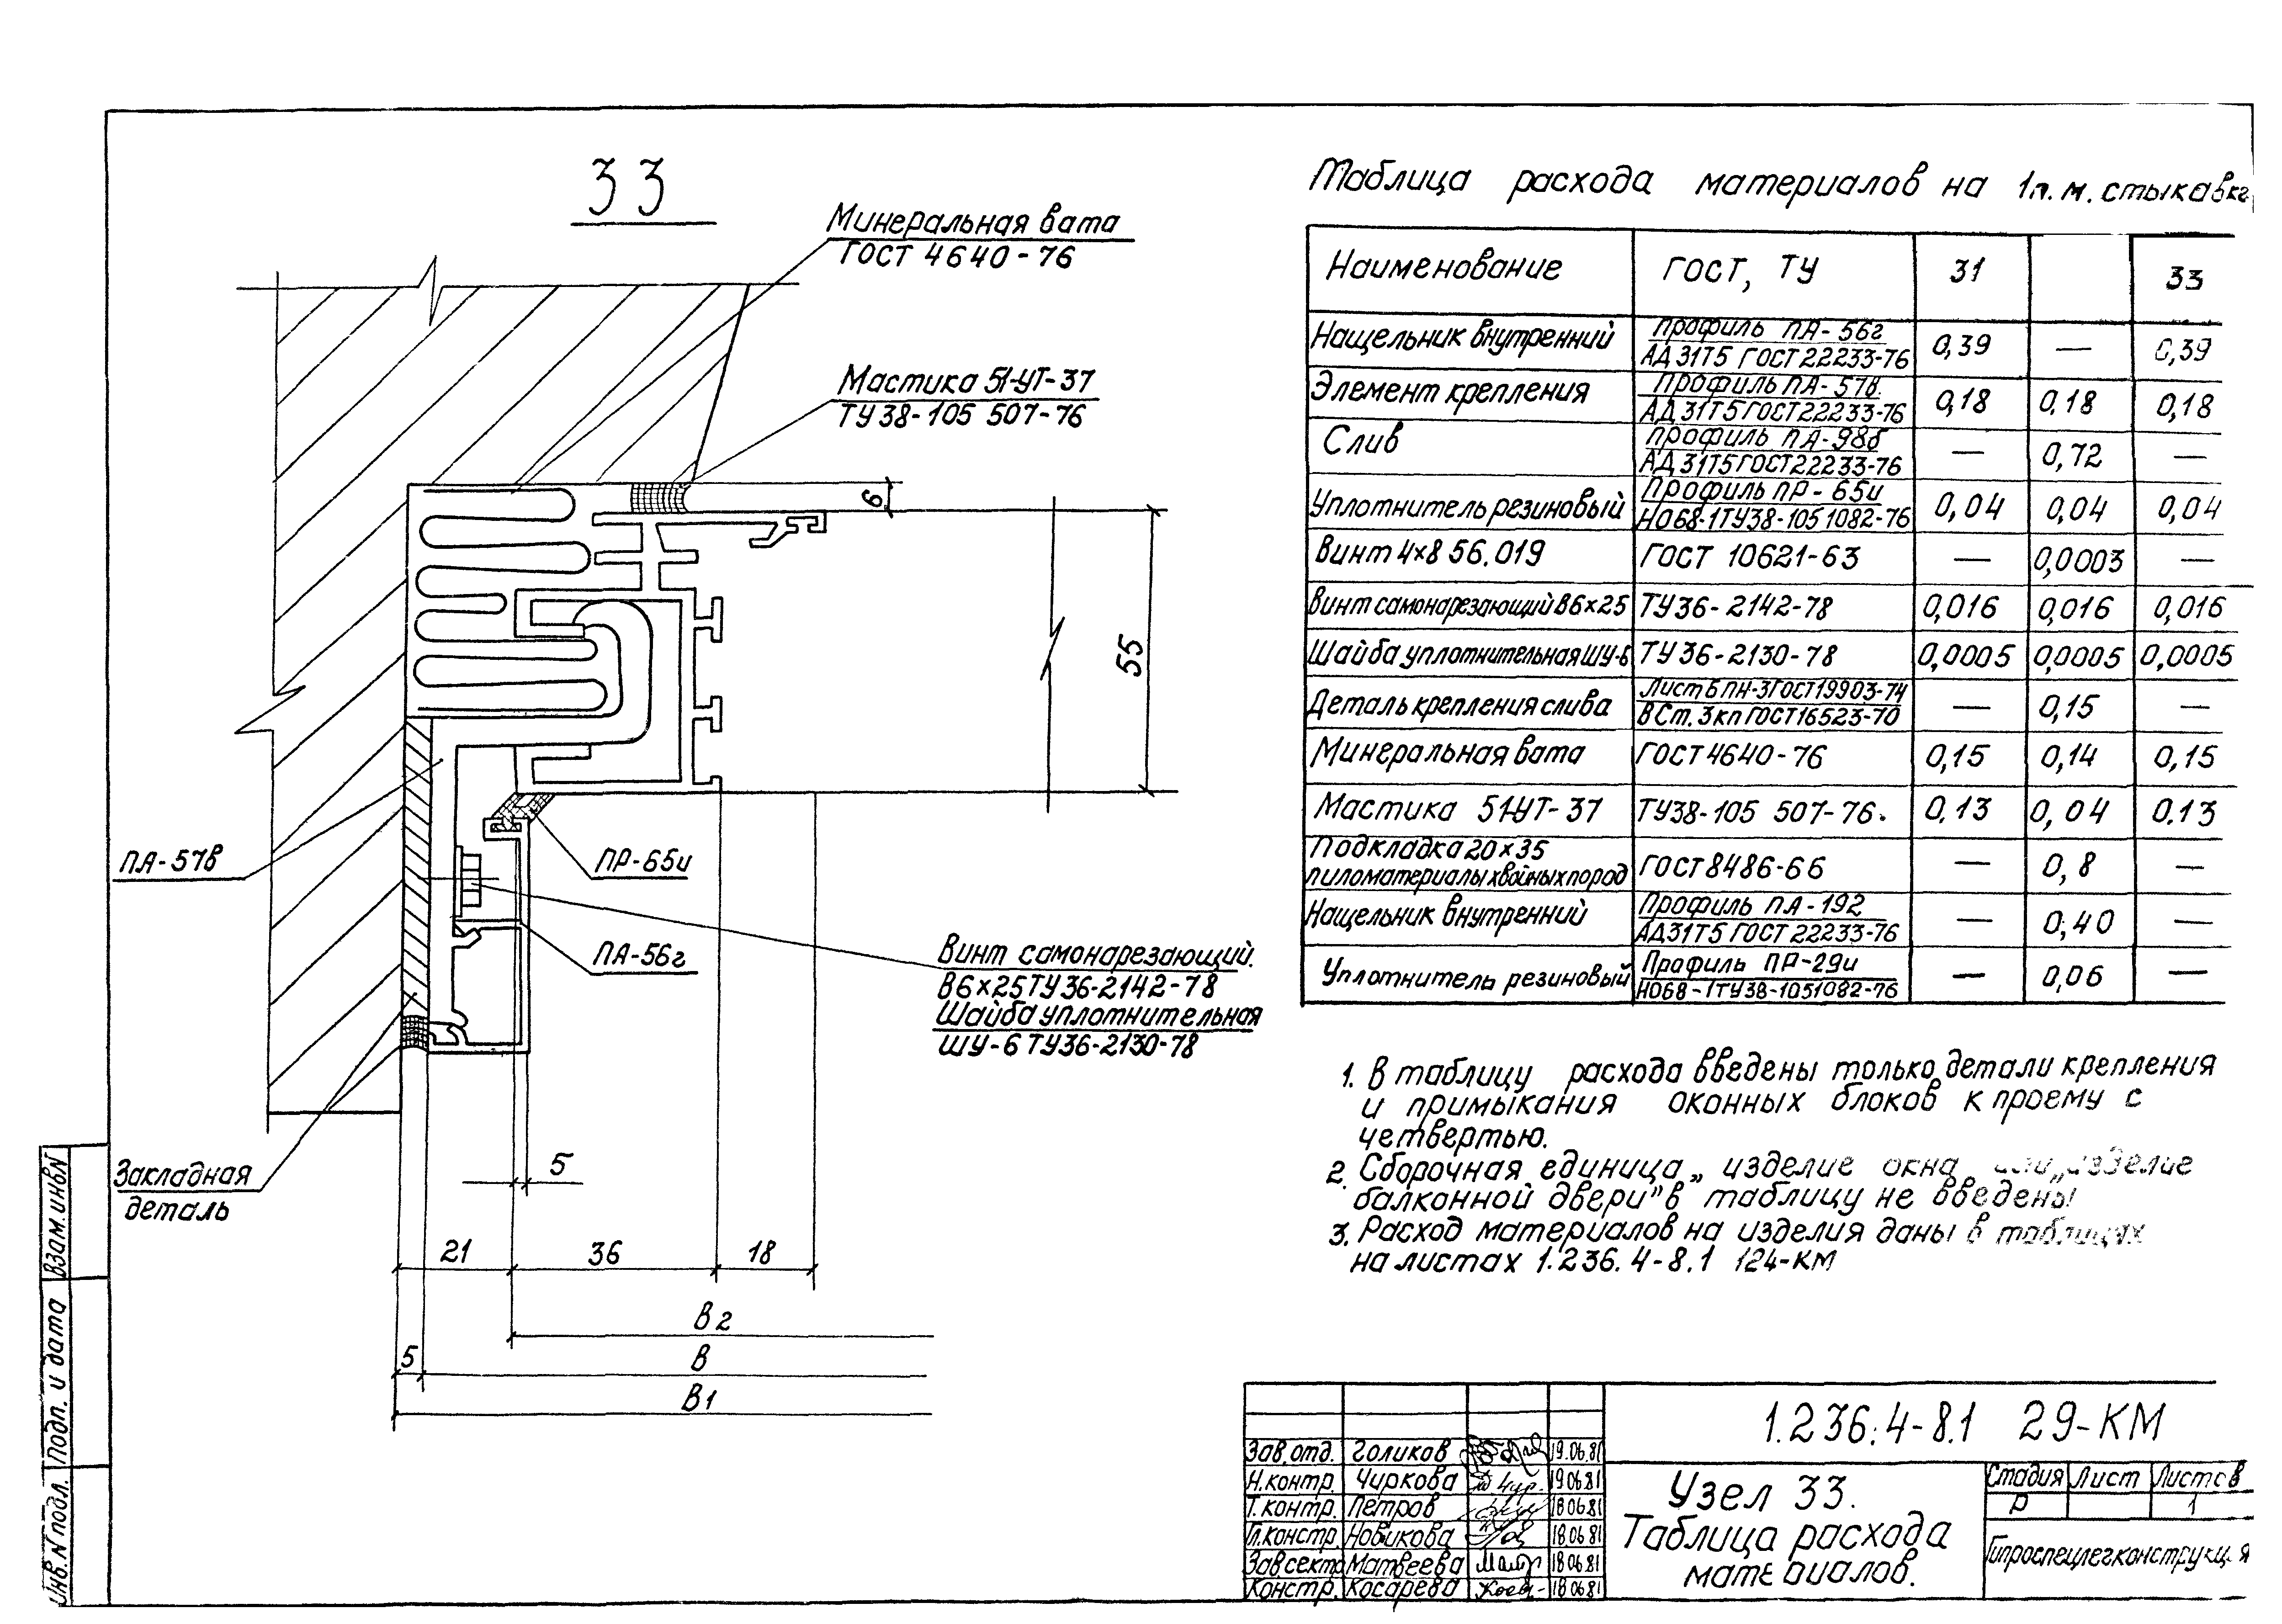 33
Минеральная вата
ГОСТ 4640-76
Мастика 51-УТ-37
ТУ 38-105 507-76
6
55
ПА-57в
ПР-65и
ПА-56г
Винт самонарезающий.
В6×25 ТУ 36-2142-78
Шайба уплотнительная
ШУ-6 ТУ36-2130-78
Закладная
деталь
5
21 36 18
В2
5 В
В1
Таблица расхода материалов на 1п.м. стыка в кг
Наименование ГОСТ, ТУ 31 33
Нащельник внутренний Профиль ПА-56г АД 31Т5 ГОСТ 22233-76 0,39 — 0,39
Элемент крепления Профиль ПА-57в. АД 31Т5 ГОСТ 22233-76 0,18 0,18 0,18
Слив Профиль ПА-98б АД 31Т5 ГОСТ 22233-76 — 0,72 —
Уплотнитель резиновый Профиль ПР-65и НО68-1ТУ38-105 1082-76 0,04 0,04 0,04
Винт 4×8 56.019 ГОСТ 10621-63 — 0,0003 —
Винт самонарезающий В6×25 ТУ36-2142-78 0,016 0,016 0,016
Шайба уплотнительная ШУ-6 ТУ 36-2130-78 0,0005 0,0005 0,0005
Деталь крепления слива Лист Б ПН-3 ГОСТ19903-74 В Ст. 3кп ГОСТ16523-70 — 0,15 —
Минеральная вата ГОСТ 4640-76 0,15 0,14 0,15
Мастика 51-УТ-37 ТУ38-105 507-76. 0,13 0,04 0.13
Подкладка 20×35 пиломатериалы хвойных пород ГОСТ 8486-66 — 0,8 —
Нащельник внутренний Профиль ПА-192 АД31Т5 ГОСТ 22233-76 — 0,40 —
Уплотнитель резиновый Профиль ПР-29и НО68-1ТУ38-1051082-76 — 0,06 —
1. В таблицу расхода введены только детали крепления
и примыкания оконных блоков к проему с
четвертью.
2. Сборочная единица „изделие окна или „изделие
балконной двери" в таблицу не введены
3. Расход материалов на изделия даны в таблицах
на листах 1.236.4-8.1 124-КМ
1.236.4-8.1 29-КМ
Зав.отд. Голиков 19.06.81
Н.контр. Чиркова 19.06.81
Т.контр. Петров 18.06.81
Гл.констр. Новикова 18.06.81
Зав.сект. Матвеева 18.06.81
Констр. Косарева 18.06.81
Узел 33.
Таблица расхода
материалов.
Стадия Лист Листов
Р 1
Гипроспецлегконструкция
Взам.инв.N
Подп. и дата
Инв.N подл.